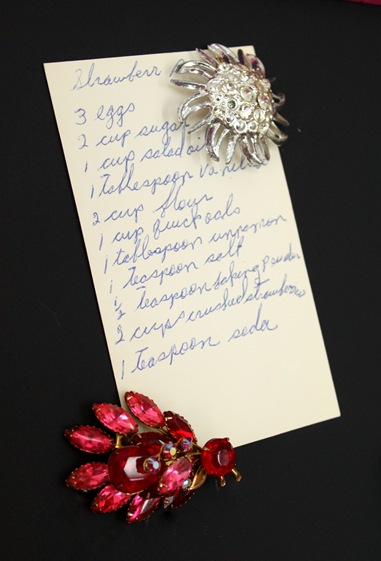 Strawberr
3 eggs
2 cup sugar
1 cup salad oil
1 tablespoon Vanilla
2 cup flour
1 cup quick oats
1 tablespoon cinnamon
1 teaspoon salt
1/2 teaspoon baking powder
2 cups crushed strawberries
1 teaspoon soda